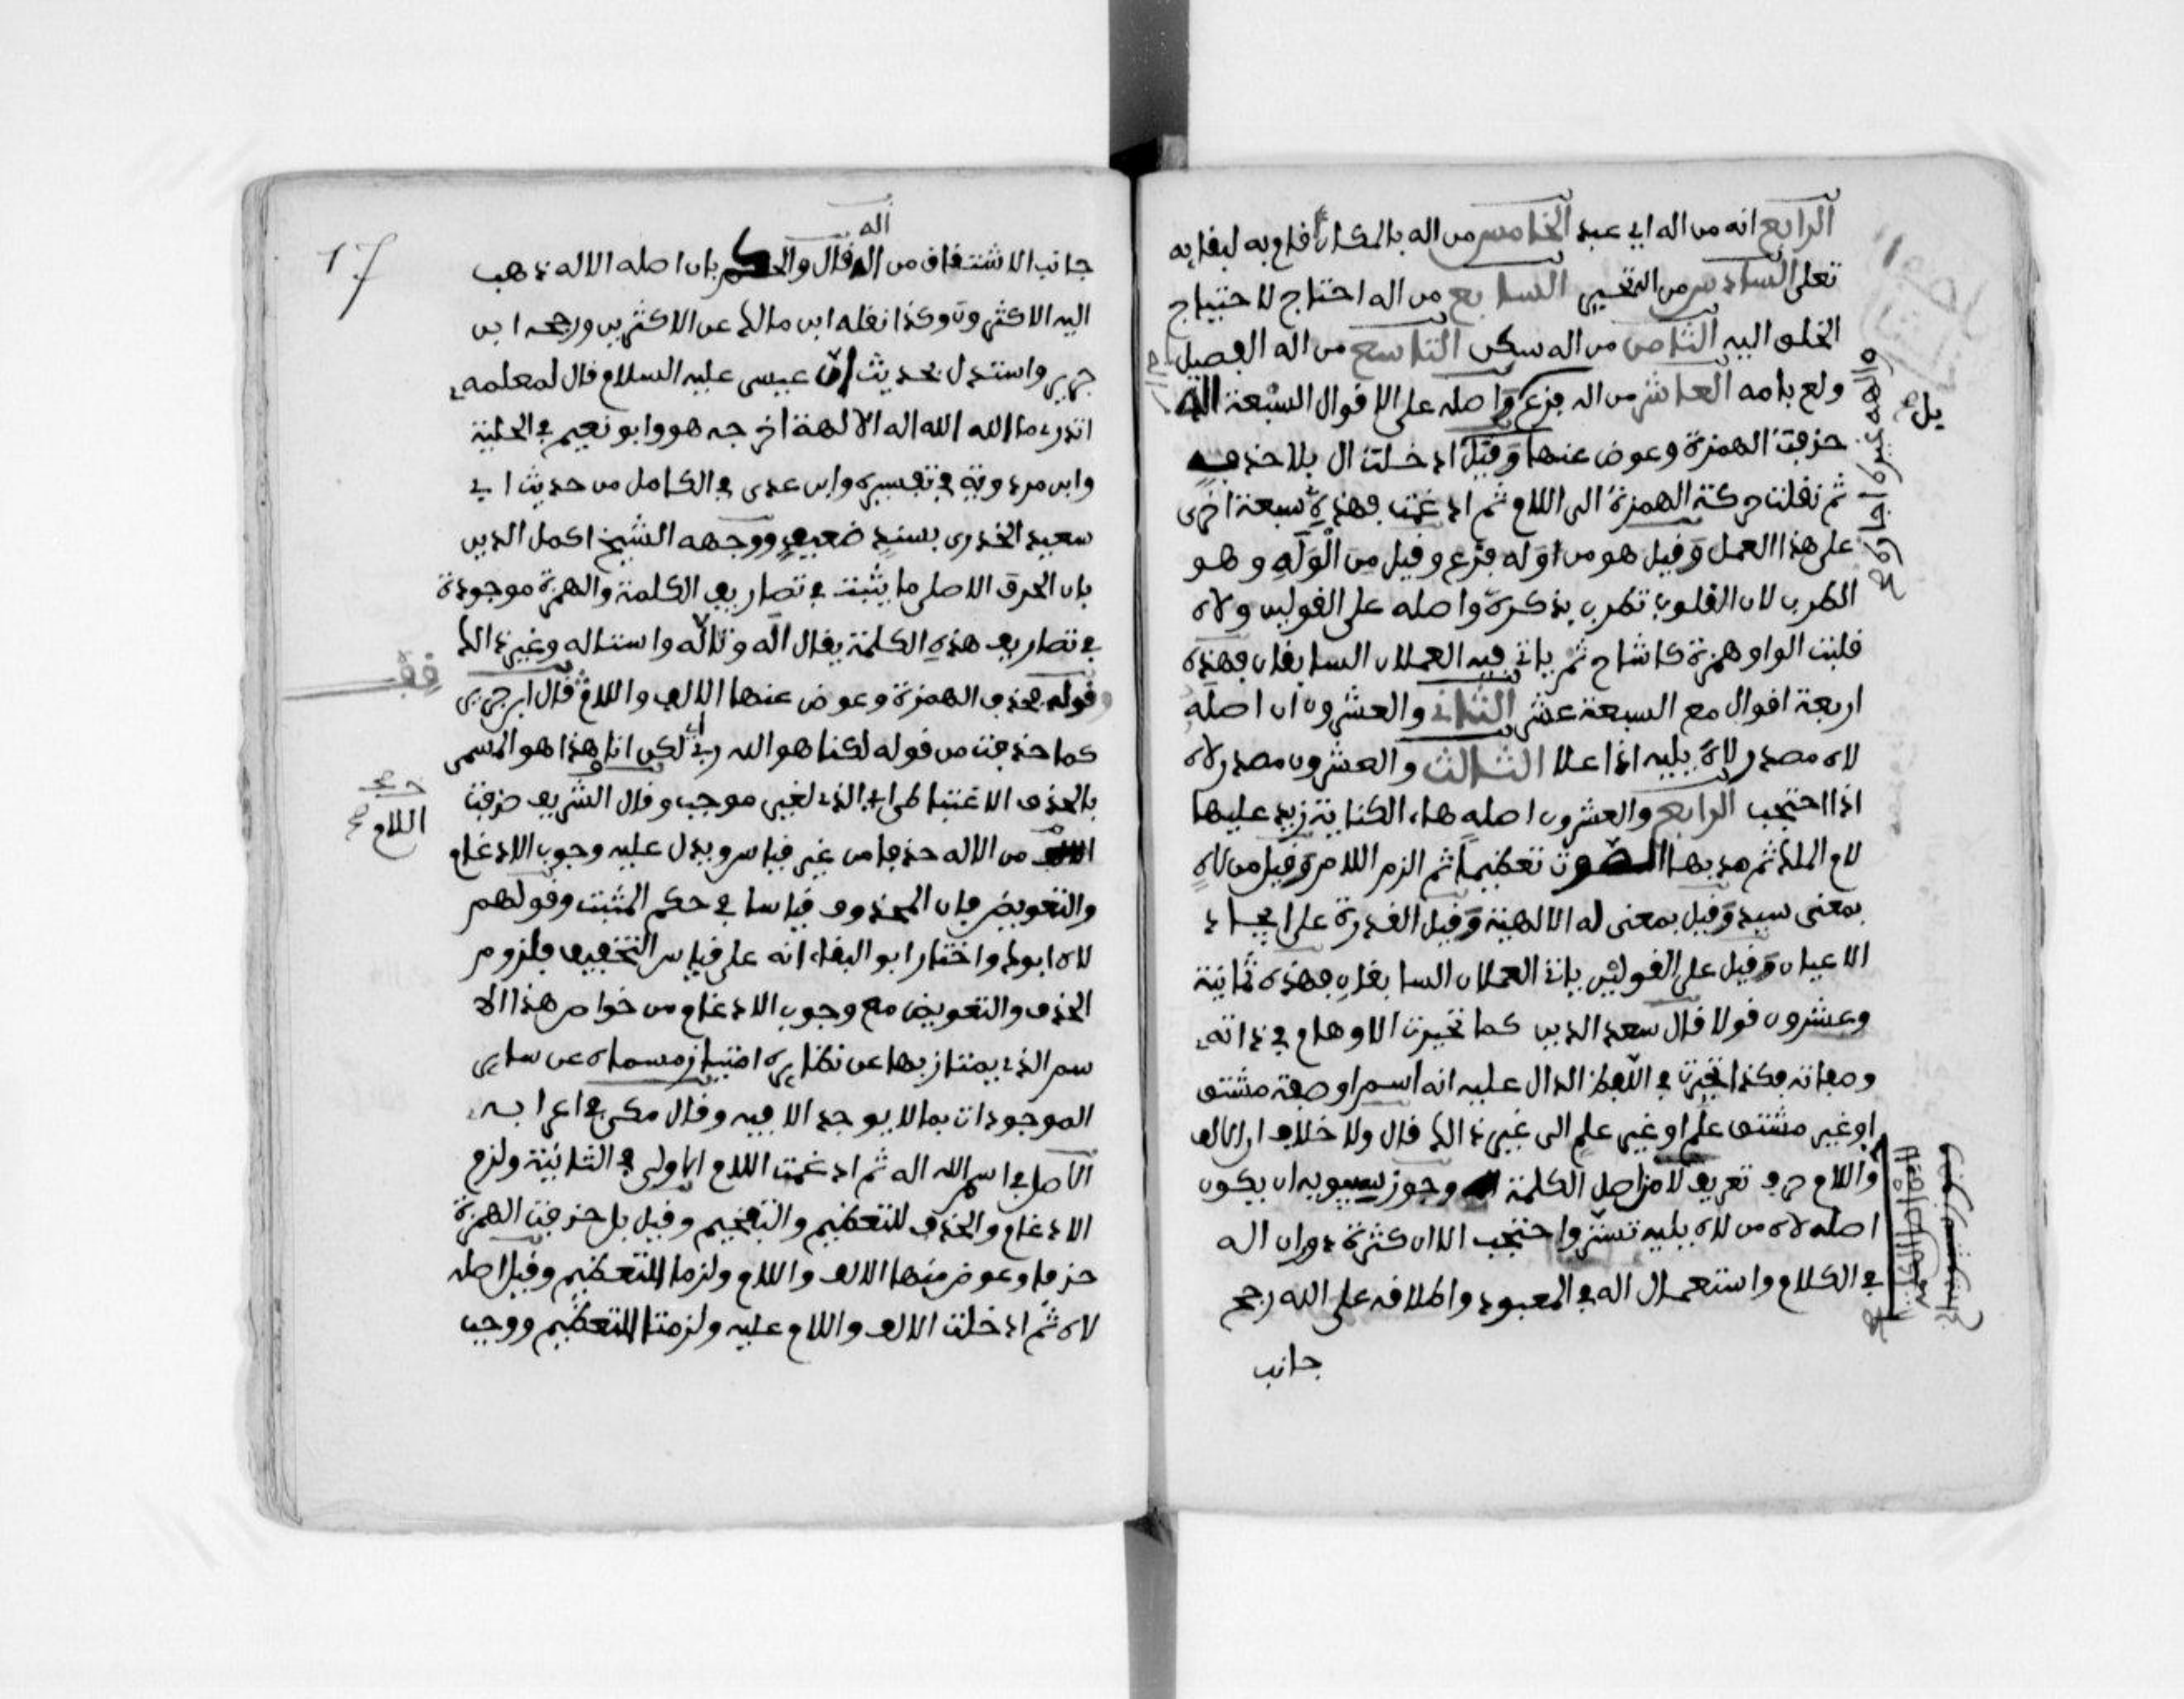 الرابع انه من اله اي عبد الخامس من اله بالمكان اقام به لبقايه
تعلى السادس من التحير السابع من اله احتاج لاحتياج
الخلق اليه الثامن من اله سكن التاسع من اله الفصيل
ولع بامه العاشر من اله فزع واصله على الاقوال السبعة الاه
حذفت الهمزة وعوض عنها وقيل ادخلت ال بلا حذف
ثم نقلت حركة الهمزة الى اللام ثم ادغمت فهذه سبعة اخرى
على هذا العمل وقيل هو من اوله فزع وقيل من الوله وهو
الطرب لان القلوب تطرب بذكره واصله على القولين ولاه
قلبت الواو همزة كاشاح ثم ياتي فيه العملان السابقان فهذه
اربعة اقوال مع السبعة عشر الثاني والعشرون ان اصله
لاه مصدر لاه يليه اذا علا الثالث والعشرون مصدر لاه
اذا احتجب الرابع والعشرون اصله هاء الكناية زيد عليها
لام الملك ثم مد بها الصوت تعظيما ثم الزم اللام وقيل من لاه
بمعنى سيد وقيل بمعنى له الالهية وقيل القدرة على ايجاد
الاعيان وقيل على القولين ياتي العملان السابقان فهذه ثمانية
وعشرون قولا قال سعد الدين كما تحيرت الاوهام في ذاته
وصفاته فكذا تحيرت في اللفظ الدال عليه انه اسم او صفة مشتق
او غير مشتق علم او غير علم الى غير ذلك قال ولا خلاف ان الالف
واللام حرف تعريف لا من اصل الكلمة وجوز سيبويه ان يكون
اصله لاه من لاه يليه تستر واحتجب الا ان كثرة دوران اله
في الكلام واستعمال اله في المعبود واطلاقه على الله رجح
جانب
17
اله
جانب الاشتقاق من اله قال والحكم بان اصله الاله ذهب
اليه الاكثرون وكذا نقله ابن مالك عن الاكثرين ورجحه ابن
جرير واستدل بحديث ان عيسى عليه السلام قال لمعلمه
اتدري ما الله الله اله الالهة اخرجه هو وابو نعيم في الحلية
وابن مردوية في تفسيره وابن عدى في الكامل من حديث ابي
سعيد الخدرى بسند ضعيف ووجهه الشيخ اكمل الدين
بان الحرف الاصلى ما يثبت في تصاريف الكلمة والهمزة موجودة
في تصاريف هذه الكلمة يقال اله وتاله واستاله وغير ذلك
وقوله بحذف الهمزة وعوض عنها الالف واللام قال ابن جرير
كما حذفت من قوله لكنا هو الله ربي اي لكن انا هذا هو المسمى
بالحذف الاعتباطى اي الذي لغير موجب وقال الشريف حذفت
اللام صح
من الاله حذفا من غير قياس ويدل عليه وجوب الادغام
والتعويض فان المحذوف قياسا في حكم المثبت وقولهم
لاه ابوك واختار ابو البقاء انه على قياس التخفيف فلزوم
الحذف والتعويض مع وجوب الادغام من خواص هذا الا
سم الذي يمتاز بها عن نظايره امتياز مسماه عن ساير
الموجودات بما لا يوجد الا فيه وقال مكي في اعرابه
الاصل في اسم الله اله ثم ادغمت اللام الاولى في الثانية ولزم
الادغام والحذف للتعظيم والتفخيم وقيل بل حذفت الهمزة
حذفا وعوض منها الالف واللام ولزما للتعظيم وقيل اصله
لاه ثم ادخلت الالف واللام عليه ولزمتا للتعظيم ووجب